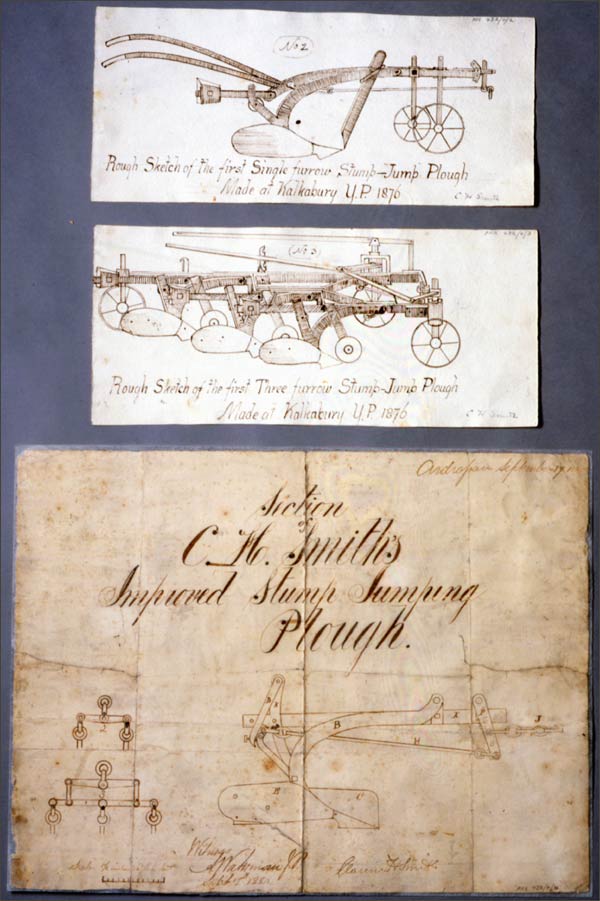 No 2
Rough Sketch of the first Single furrow Stump-Jump Plough
Made at Kalkabury Y.P. 1876
C H Smith
(No 3)
Rough Sketch of the first Three furrow Stump-Jump Plough
Made at Kalkabury Y.P. 1876
C H Smith
September
Section
of
C. H. Smith's
Improved Stump Jumping
Plough.
2
3
B
X
B
H
J
E
C
F
Clarence H Smith